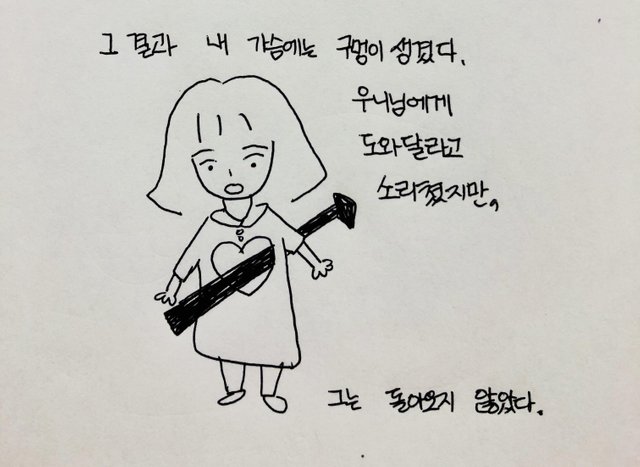 그 결과 내 가슴에는 구멍이 생겼다.
우니님에게
도와달라고
소리쳤지만,
그는 돌아오지 않았다.